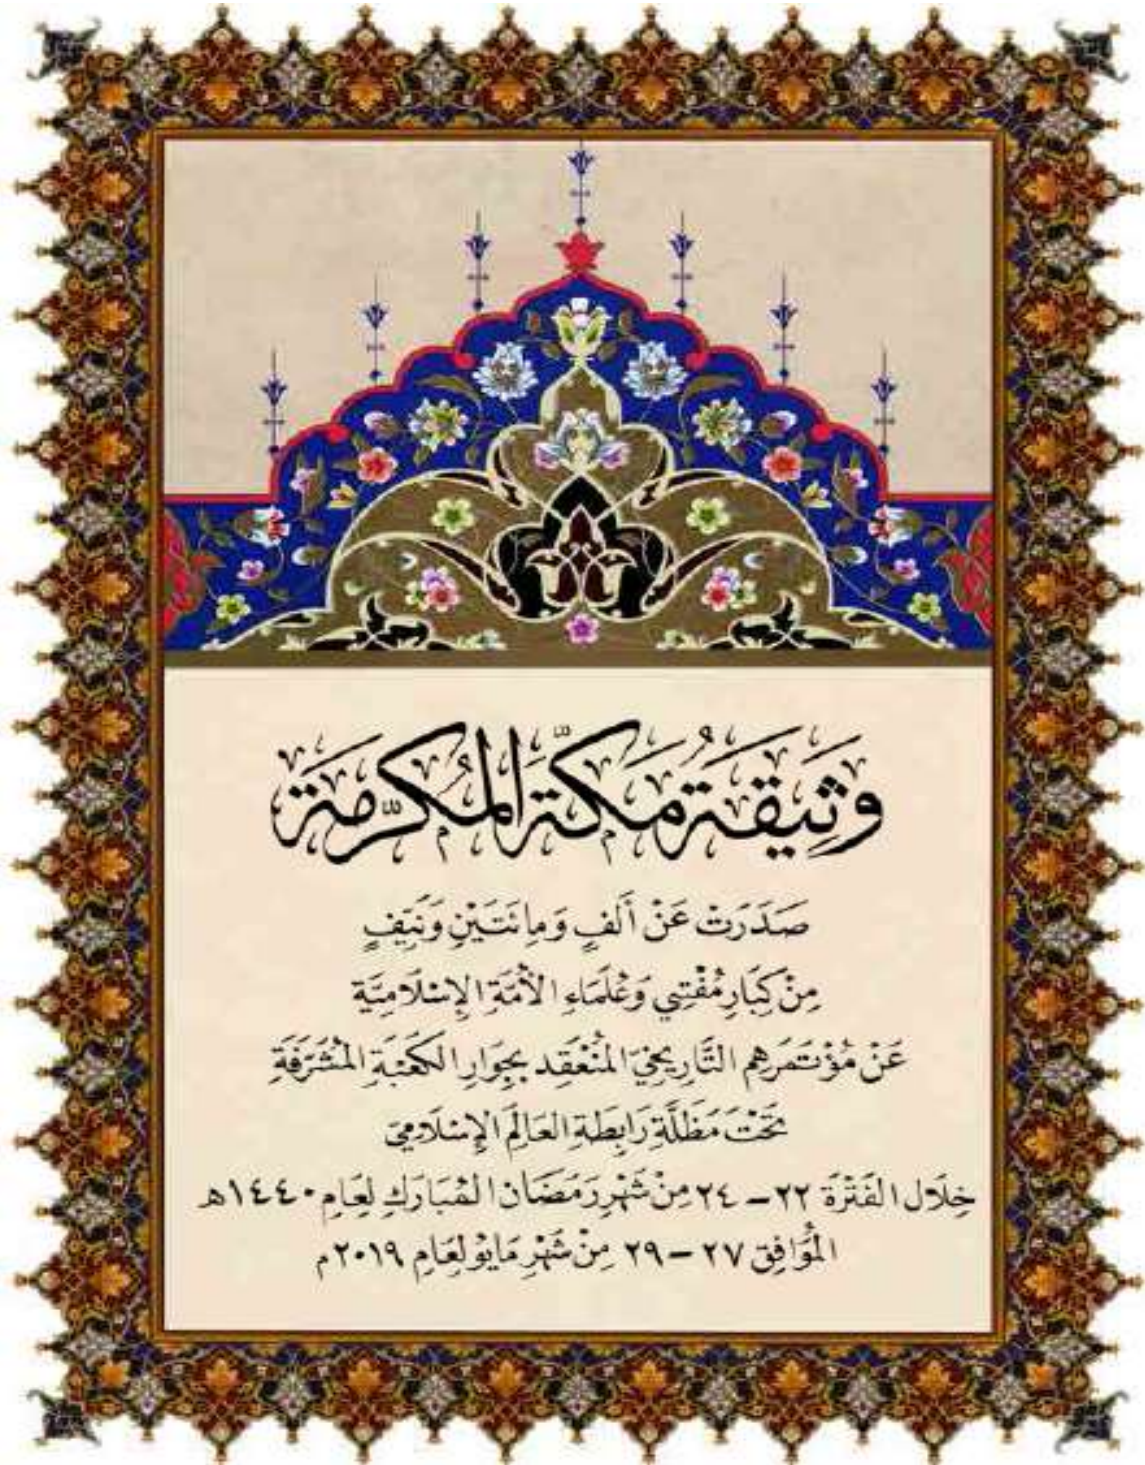 وَثِيقَةُ مَكَّةَ المُكَرَّمَة
صَدَرَتْ عَنْ أَلفٍ وَمِائَتَيْنِ وَنَيِّفٍ
مِنْ كِبَارِ مُفْتِيي وَعُلَمَاءِ الأُمَّةِ الإِسْلَامِيَّة
عَنْ مُؤْتَمَرِهِم التَّارِيخِيّ المُنْعَقِد بِجِوَارِ الكَعْبَةِ المُشَرَّفَةِ
تَحْتَ مَظَلَّةِ رَابِطَةِ العَالَمِ الإِسْلَامِيّ
خِلَال الفَتْرَة ٢٢ – ٢٤ مِنْ شَهْرِ رَمَضَان المُبَارَكِ لِعَامِ ١٤٤٠هـ
المُوَافِق ٢٧ – ٢٩ مِنْ شَهْرِ مَايُو لِعَامِ ٢٠١٩م